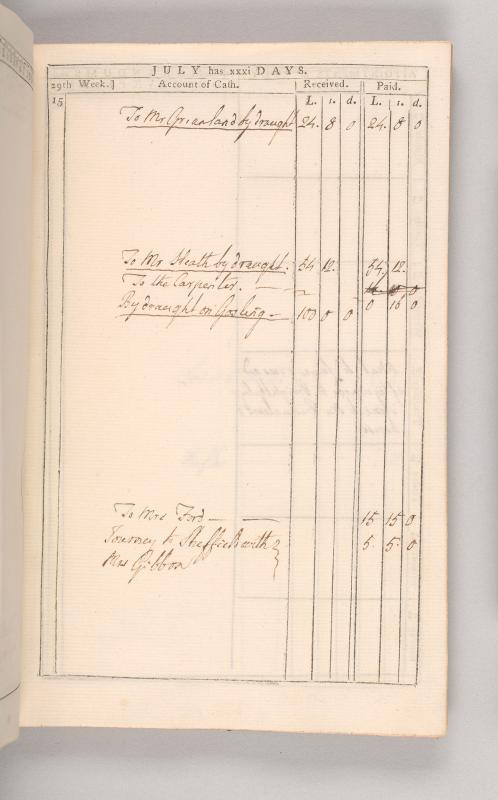 JULY has xxxi DAYS.
29th Week.] Account of Cash. Received. Paid.
L. s. d. L. s. d.
15
To Mr Grienland by draught 24. 8 0 24. 8 0
To Mr Heath by draught. 54 12. 54. 12.
To the Carpenter. 0 16 0
By draught on Gosling 100 0 0
To Mrs Ford 15 15 0
Journey to Sheffield with 5. 5. 0
Mrs Gibbon